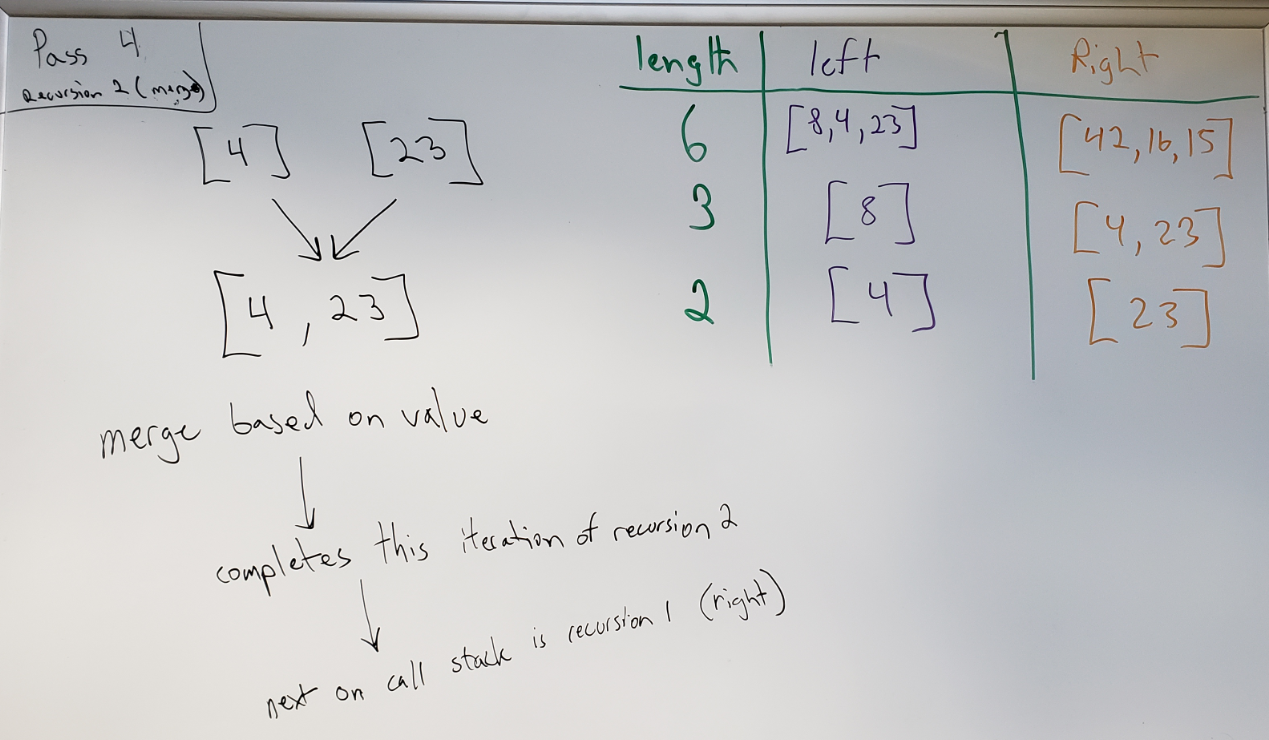 Pass 4
Recursion 2 (merge)
[4] [23]
[4, 23]
merge based on value
completes this iteration of recursion 2
next on call stack is recursion 1 (right)
length left Right
6 [8,4,23] [42,16,15]
3 [8] [4,23]
2 [4] [23]